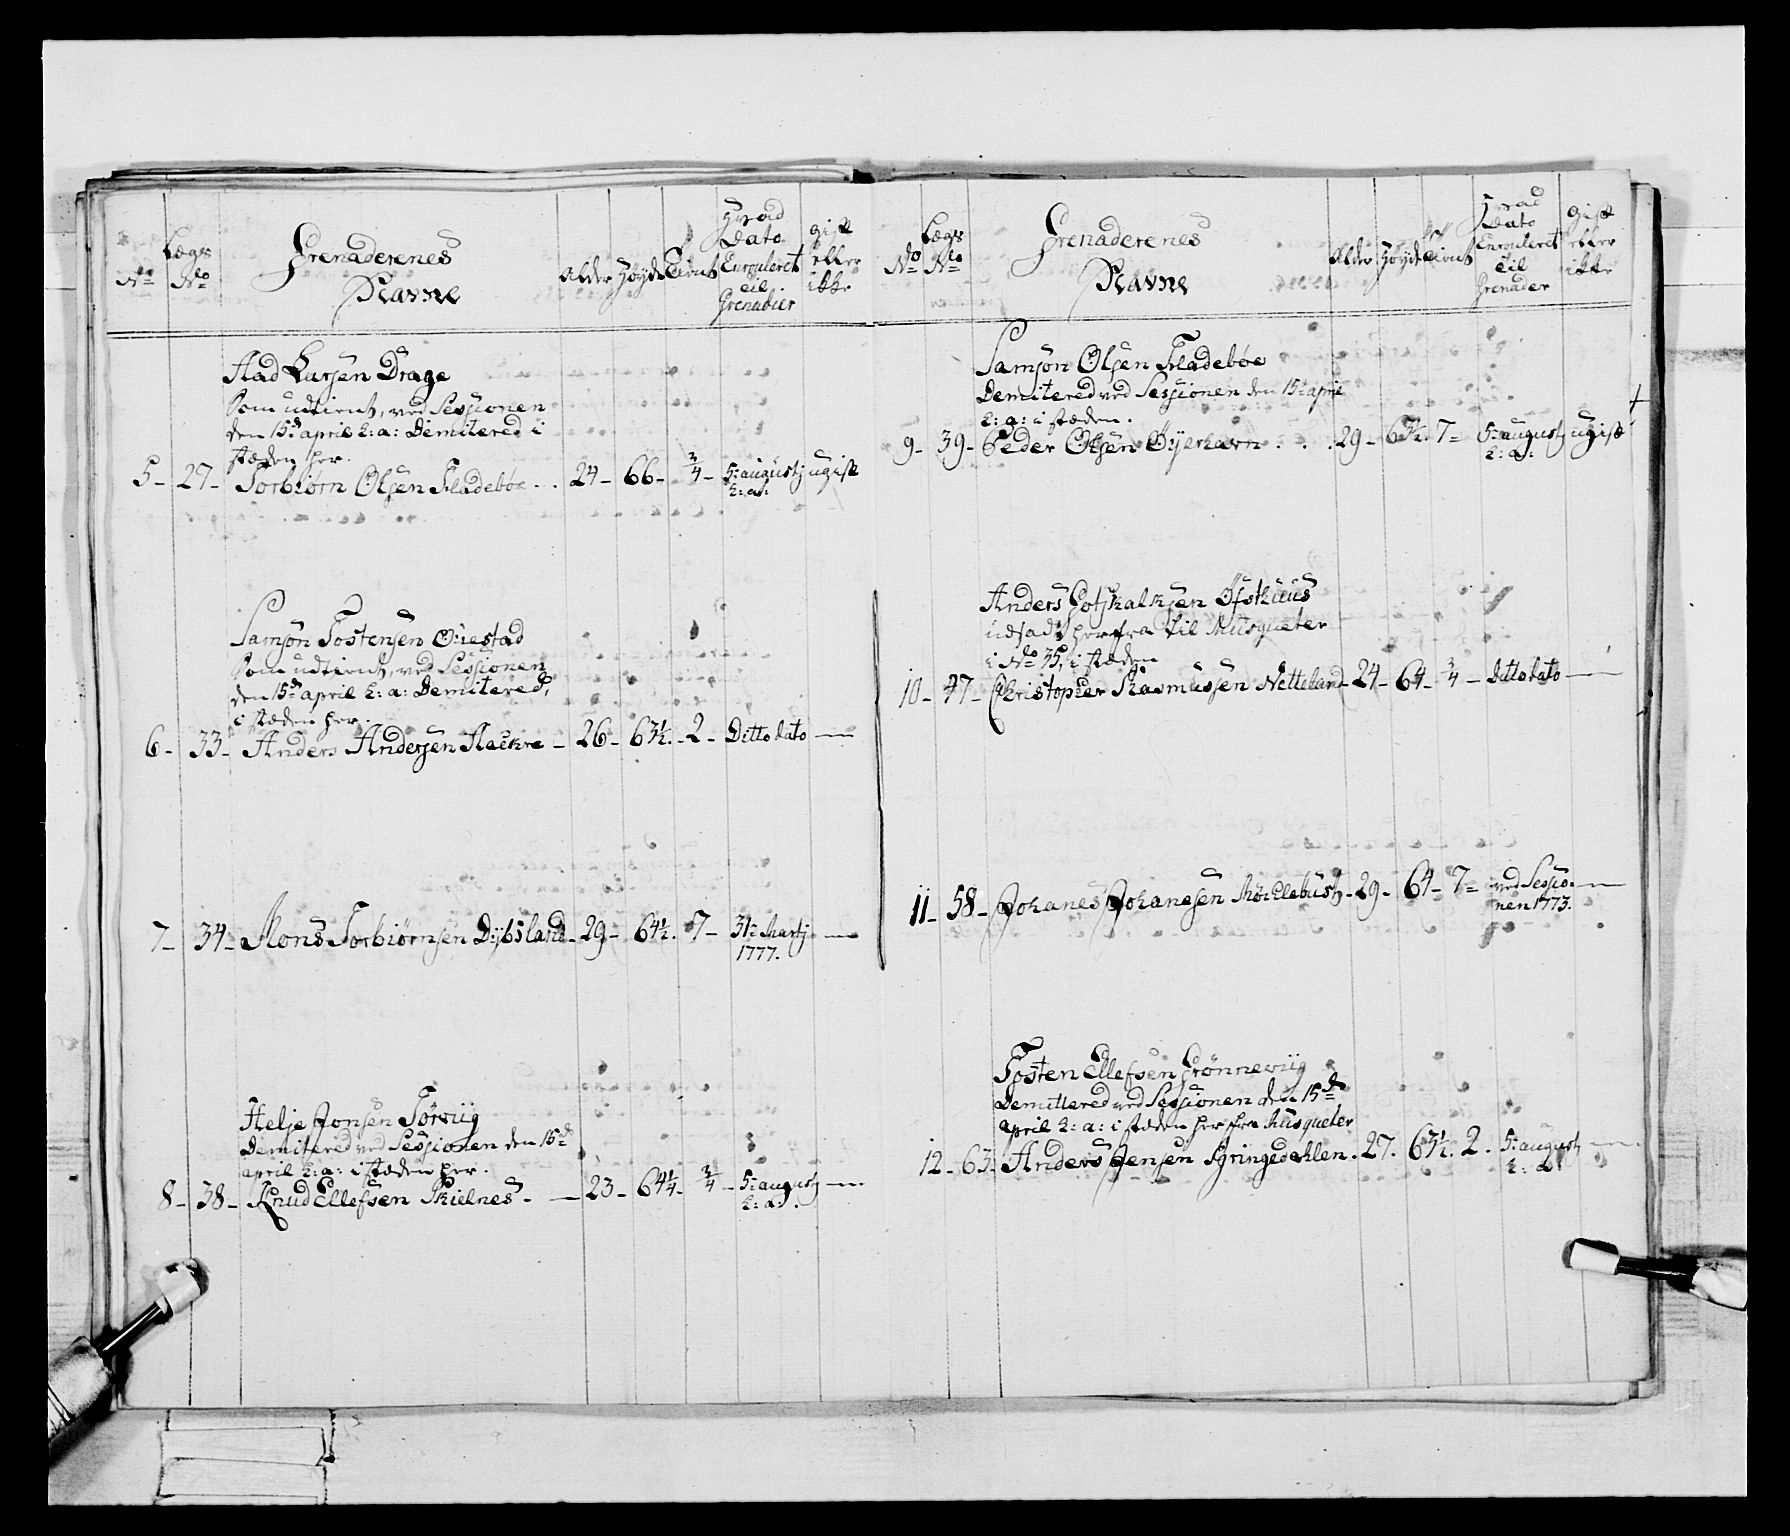 No Lægs No Grenaderenes Navne Alder Høyde Tient Hvad Dato Enrouleret til Grenadier gift eller ikke
Aad Larsen Drage
Som udtient, ved Sessionen
den 15de april h: a: Demitered i
stæden her.
5 - 27 - Torbiørn Olsen Fladebøe - . 24 - 66 - 3/4 - 5: augustj ugift
h: a:
Samson Tostensen
Som udtient, ved Sessionen
den 15de april h: a: Demitered,
i stæden her.
6 - 33 - Anders Andersen - 26 - 63½. - 2 - Ditto dato —
7 - 34 - Mons Torbiørnsen Dybsland - 29 - 64½. 7 - 31: Martj —
1777.
Helje Jonsen Torviig
Demitered ved Sessionen den 15de
april h: a: i stæden her.
8 - 38 - Knud Ellefsen Skielnes - — 23 - 64¼ - 3/4 - 5: augustj —
h: a: .
No Lægs No Grenaderenes Navne Alder Høyde tient Hvad Dato Enrouleret til Grenader gift eller ikke
Samson Olsen Fladebøe
Demitered ved Sessionen den 15: april
h: a: i stæden.
9 - 39 - Peder Olsen Øyerhavn . . . 29 - 63½. 7 = 5: augustj ugift
h: a:
Anders Gotskalksen Øfsthuus
udsadt herfra til Musqueter
i No 35, i stæden
10 - 47 - Christopher Rasmussen Netteland - 24 - 64 - 3/4 - Ditto dato —
11 - 58 - Johanes Johanesen Møchlebust - 29 - 64 - 7 = ved Sessio- —
nen 1773.
Tosten Ellefsen Grønneviig
Demittered ved Sessionen den 15de
april h: a: i stæden her fra Musqueter
12 - 63 - Anders Jensen Giringedahlen . 27. 63½. 2. 5: augustj —
h: a: